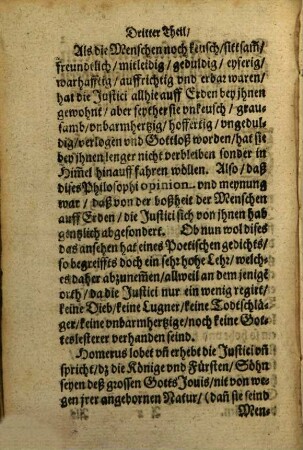 Dritter Theil/
Als die Menschen noch keusch/sittsam/
freundelich/mitleidig/gedvldig/eyferig/
warhafftig/auffrichtig vnd erbar waren/
hat die Justici allhie auff Erden bey jhnen
gewohnt/ aber seyther sie vnkeusch/ grau-
samb/vnbarmhertzig/hoffertig/vngedul-
dig/verlogen vnd Gottloß worden/hat sie
bey jhnen lenger nicht verbleiben sonder in
Him̃el hinauff fahren wöllen. Also/ daß
dises Philosophi opinion vnd meynung
war/ daß von der boßheit der Menschen
auff Erden/ die Justici sich von jhnen hab
gentzlich abgesondert. Ob nun wol dises
das ansehen hat eines Poetischen gedichts/
so begreiffts doch ein sehr hohe Lehr/ welch-
es daher abzunem̃en/allweil an dem jenigẽ
orth/ da die Justici nur ein wenig regirt/
keine Dieb/keine Lugner/keine Todtschlä-
ger/keine vnbarmhertzige/noch keine Got-
teslesterer verhanden seind.
Homerus lobet vñ erhebt die Justici vñ
spricht/dz die Könige vnd Fürsten/ Söhn
seyen deß grossen Gotts Jouis/nit von we-
gen jrer angebornen Natur/(dañ sie seind
Men-